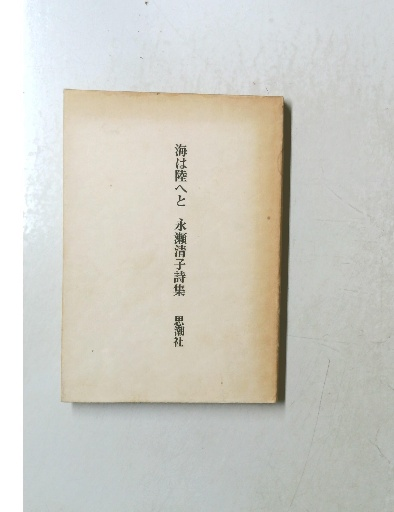 海は陸へと 永瀬清子詩集 思潮社